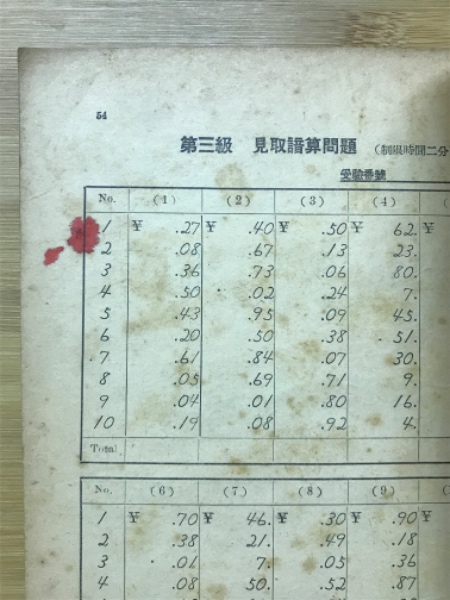 54
第三級 見取諳算問題 (制限時間二分
受驗番號
No. (1) (2) (3) (4)
1 ¥ .27 ¥ .40 ¥ .50 ¥ 62. ¥
2 .08 .67 .13 23.
3 .36 .73 .06 80.
4 .50 .02 .24 7.
5 .43 .95 .09 45.
6 .20 .50 .38 51.
7 .61 .84 .07 30.
8 .05 .69 .71 9.
9 .04 .01 .80 16.
10 .19 .08 .92 4.
Total
No. (6) (7) (8) (9)
1 ¥ .70 ¥ 46. ¥ .30 ¥ .90 ¥
2 .38 21. .49 .18
3 .01 7. .05 .36
4 .08 50. .52 .87